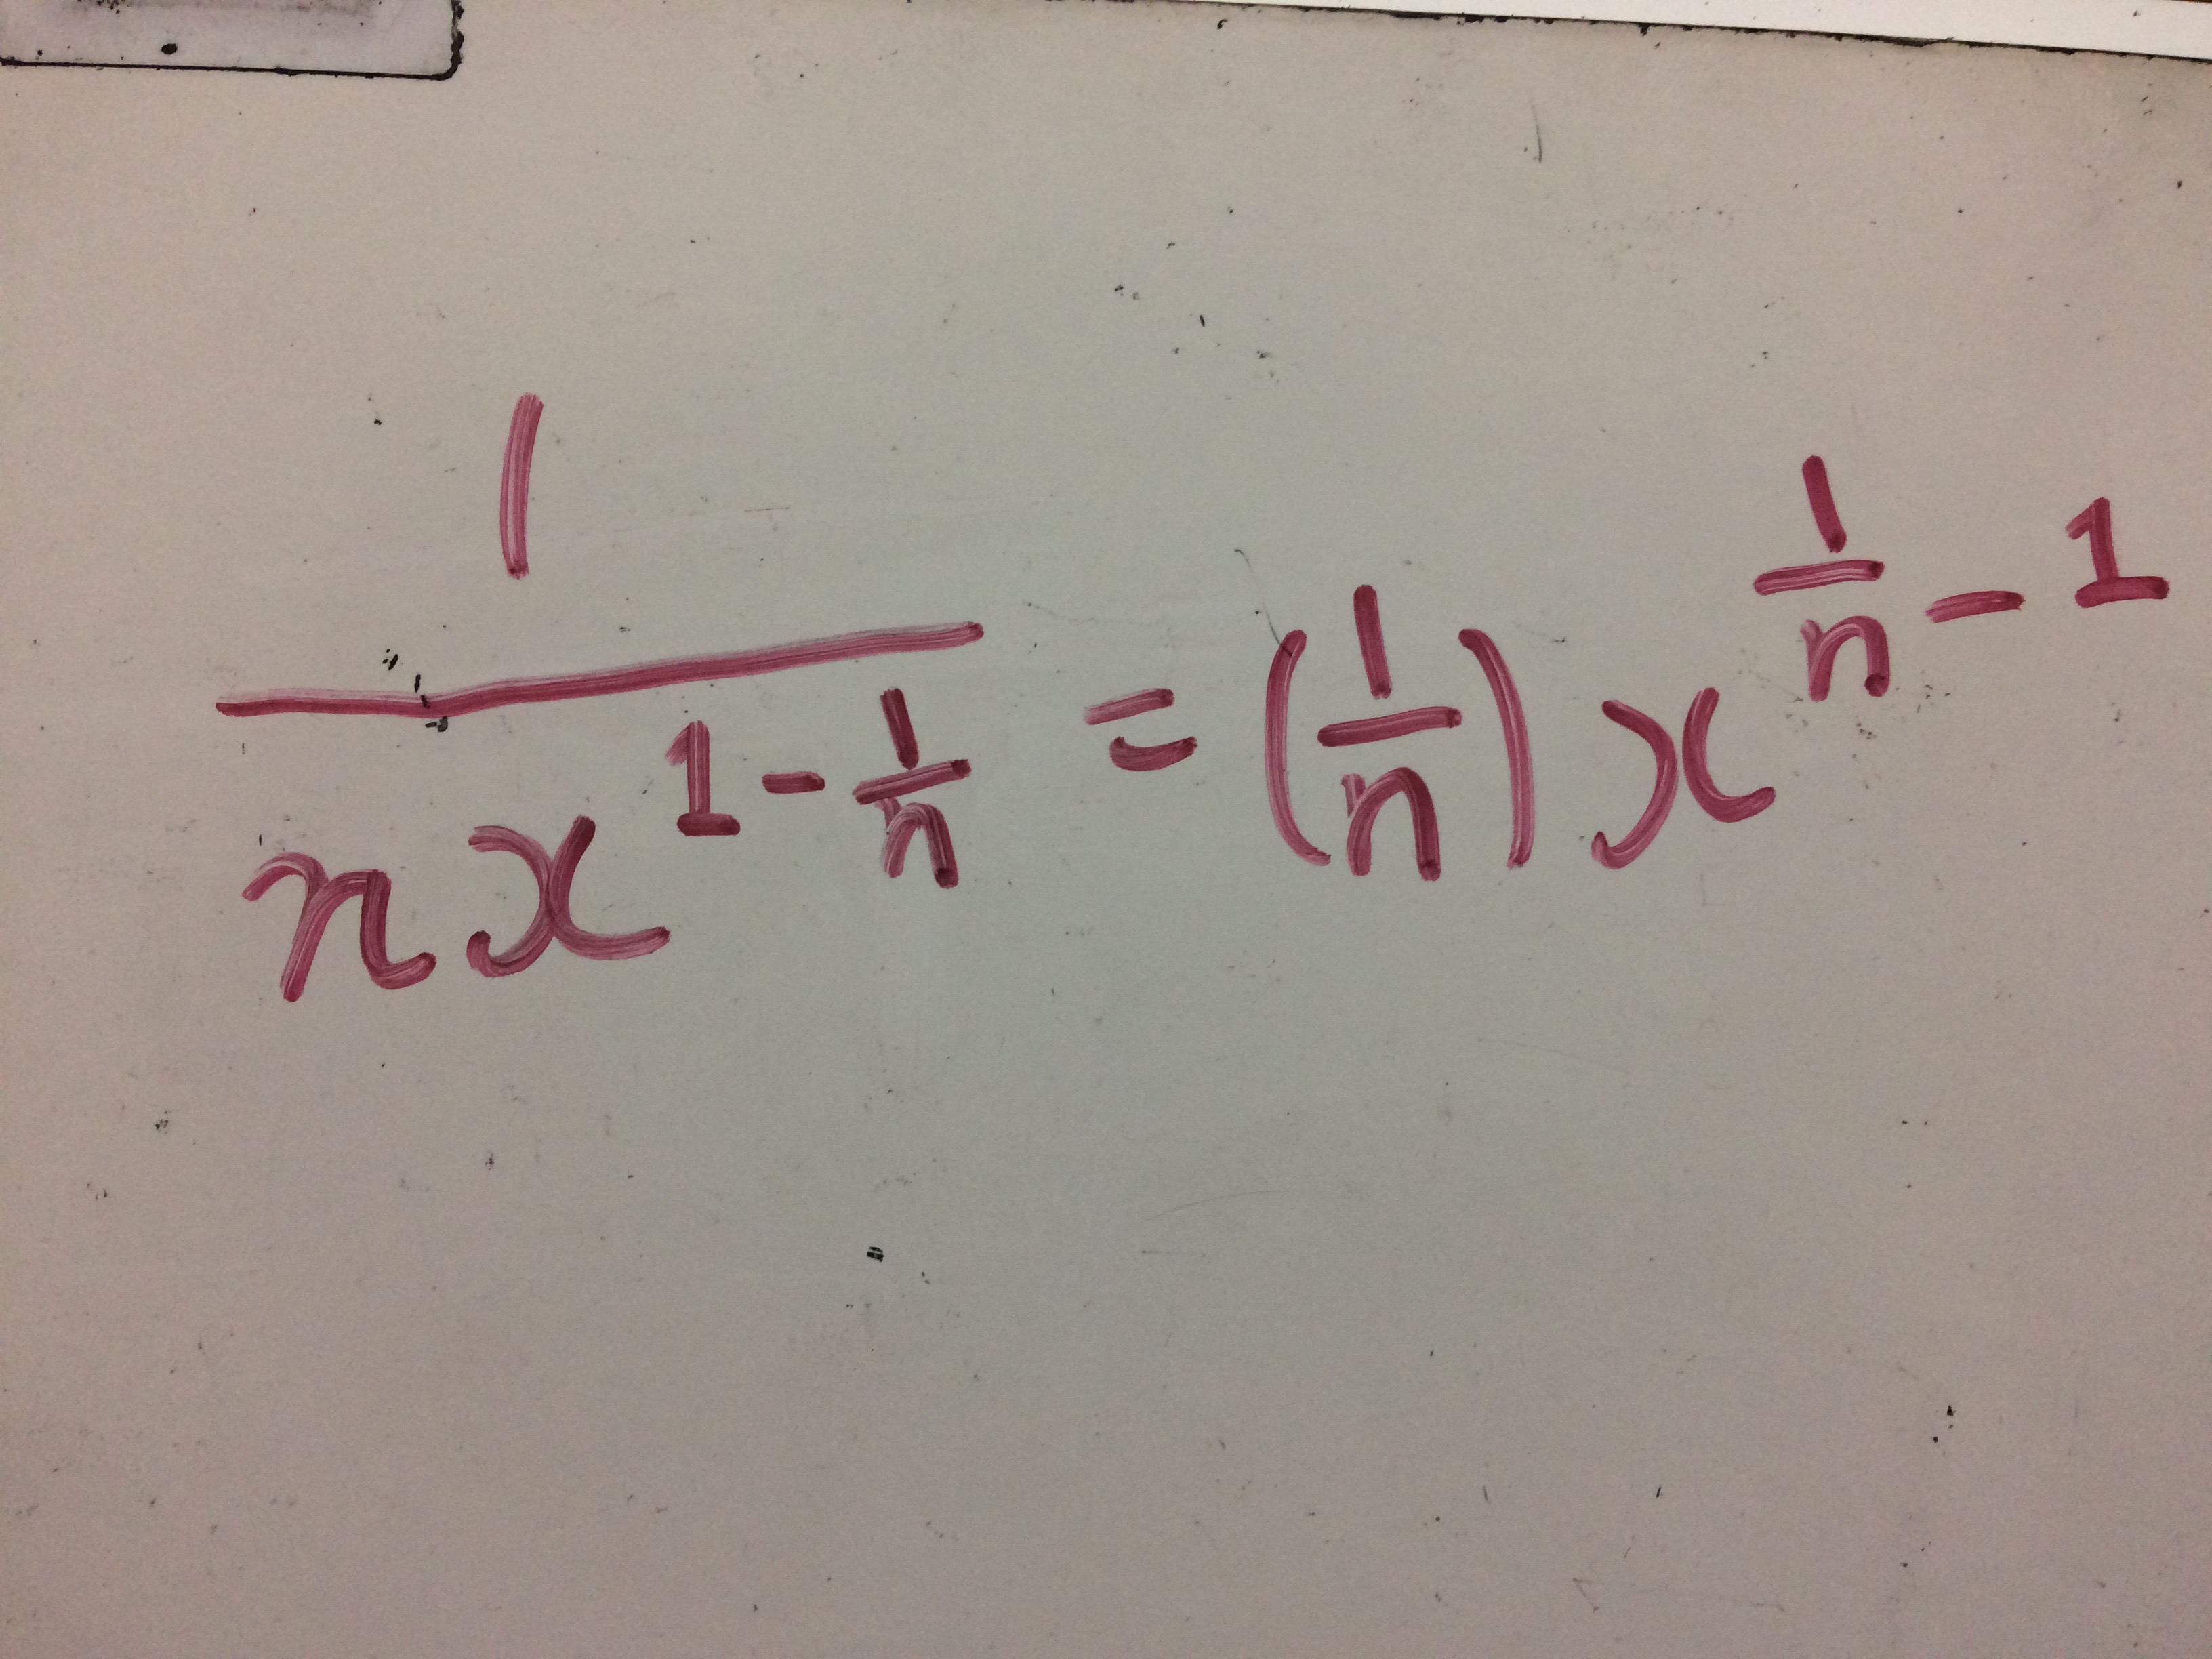 \frac{1}{nx^{1-\frac{1}{n}}} = \left(\frac{1}{n}\right)x^{\frac{1}{n}-1}